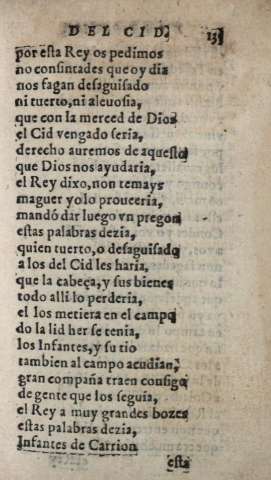 DEL CID. 13
por esta Rey os pedimos
no consintades que oy dia
nos fagan desaguisado
ni tuerto, ni aleuosia,
que con la merced de Dios
el Cid vengado seria,
derecho auremos de aquesto
que Dios nos ayudaria,
el Rey dixo, non temays
maguer yo lo proueeria,
mandó dar luego vn pregon
estas palabras dezia,
quien tuerto, o desaguisado
a los del Cid les haria,
que la cabeça, y sus bienes
todo alli lo perderia,
el los metiera en el campo
do la lid her se tenia,
los Infantes, y su tio
tambien al campo acudian,
gran compaña traen consigo
de gente que los seguia,
el Rey a muy grandes bozes
estas palabras dezia,
Infantes de Carrion
esta